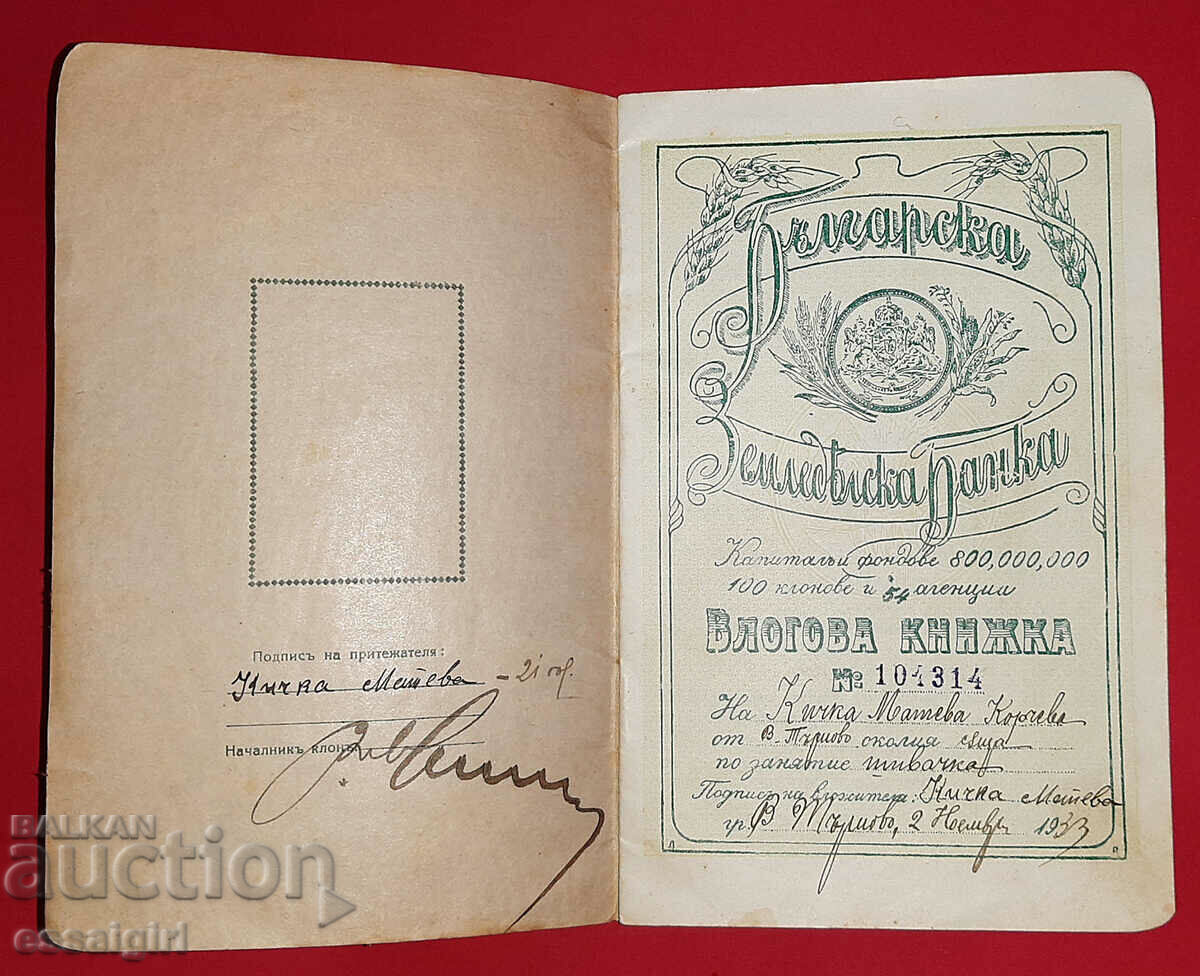 Подписъ на притежателя:
Кичка Матева – 21 год.
Началникъ клонъ
Българска
Земледѣлска Банка
Капиталъ и фондове 800,000,000
100 клонове и 54 агенции
ВЛОГОВА КНИЖКА
№: 104314
На Кичка Матева Корчева
от В. Търново околия сѫща
по занятие шивачка
Подпист на вложителя: Кичка Матева
гр. В. Търново, 2 Ноемвр. 1933
BALKAN
auction
essaigirl